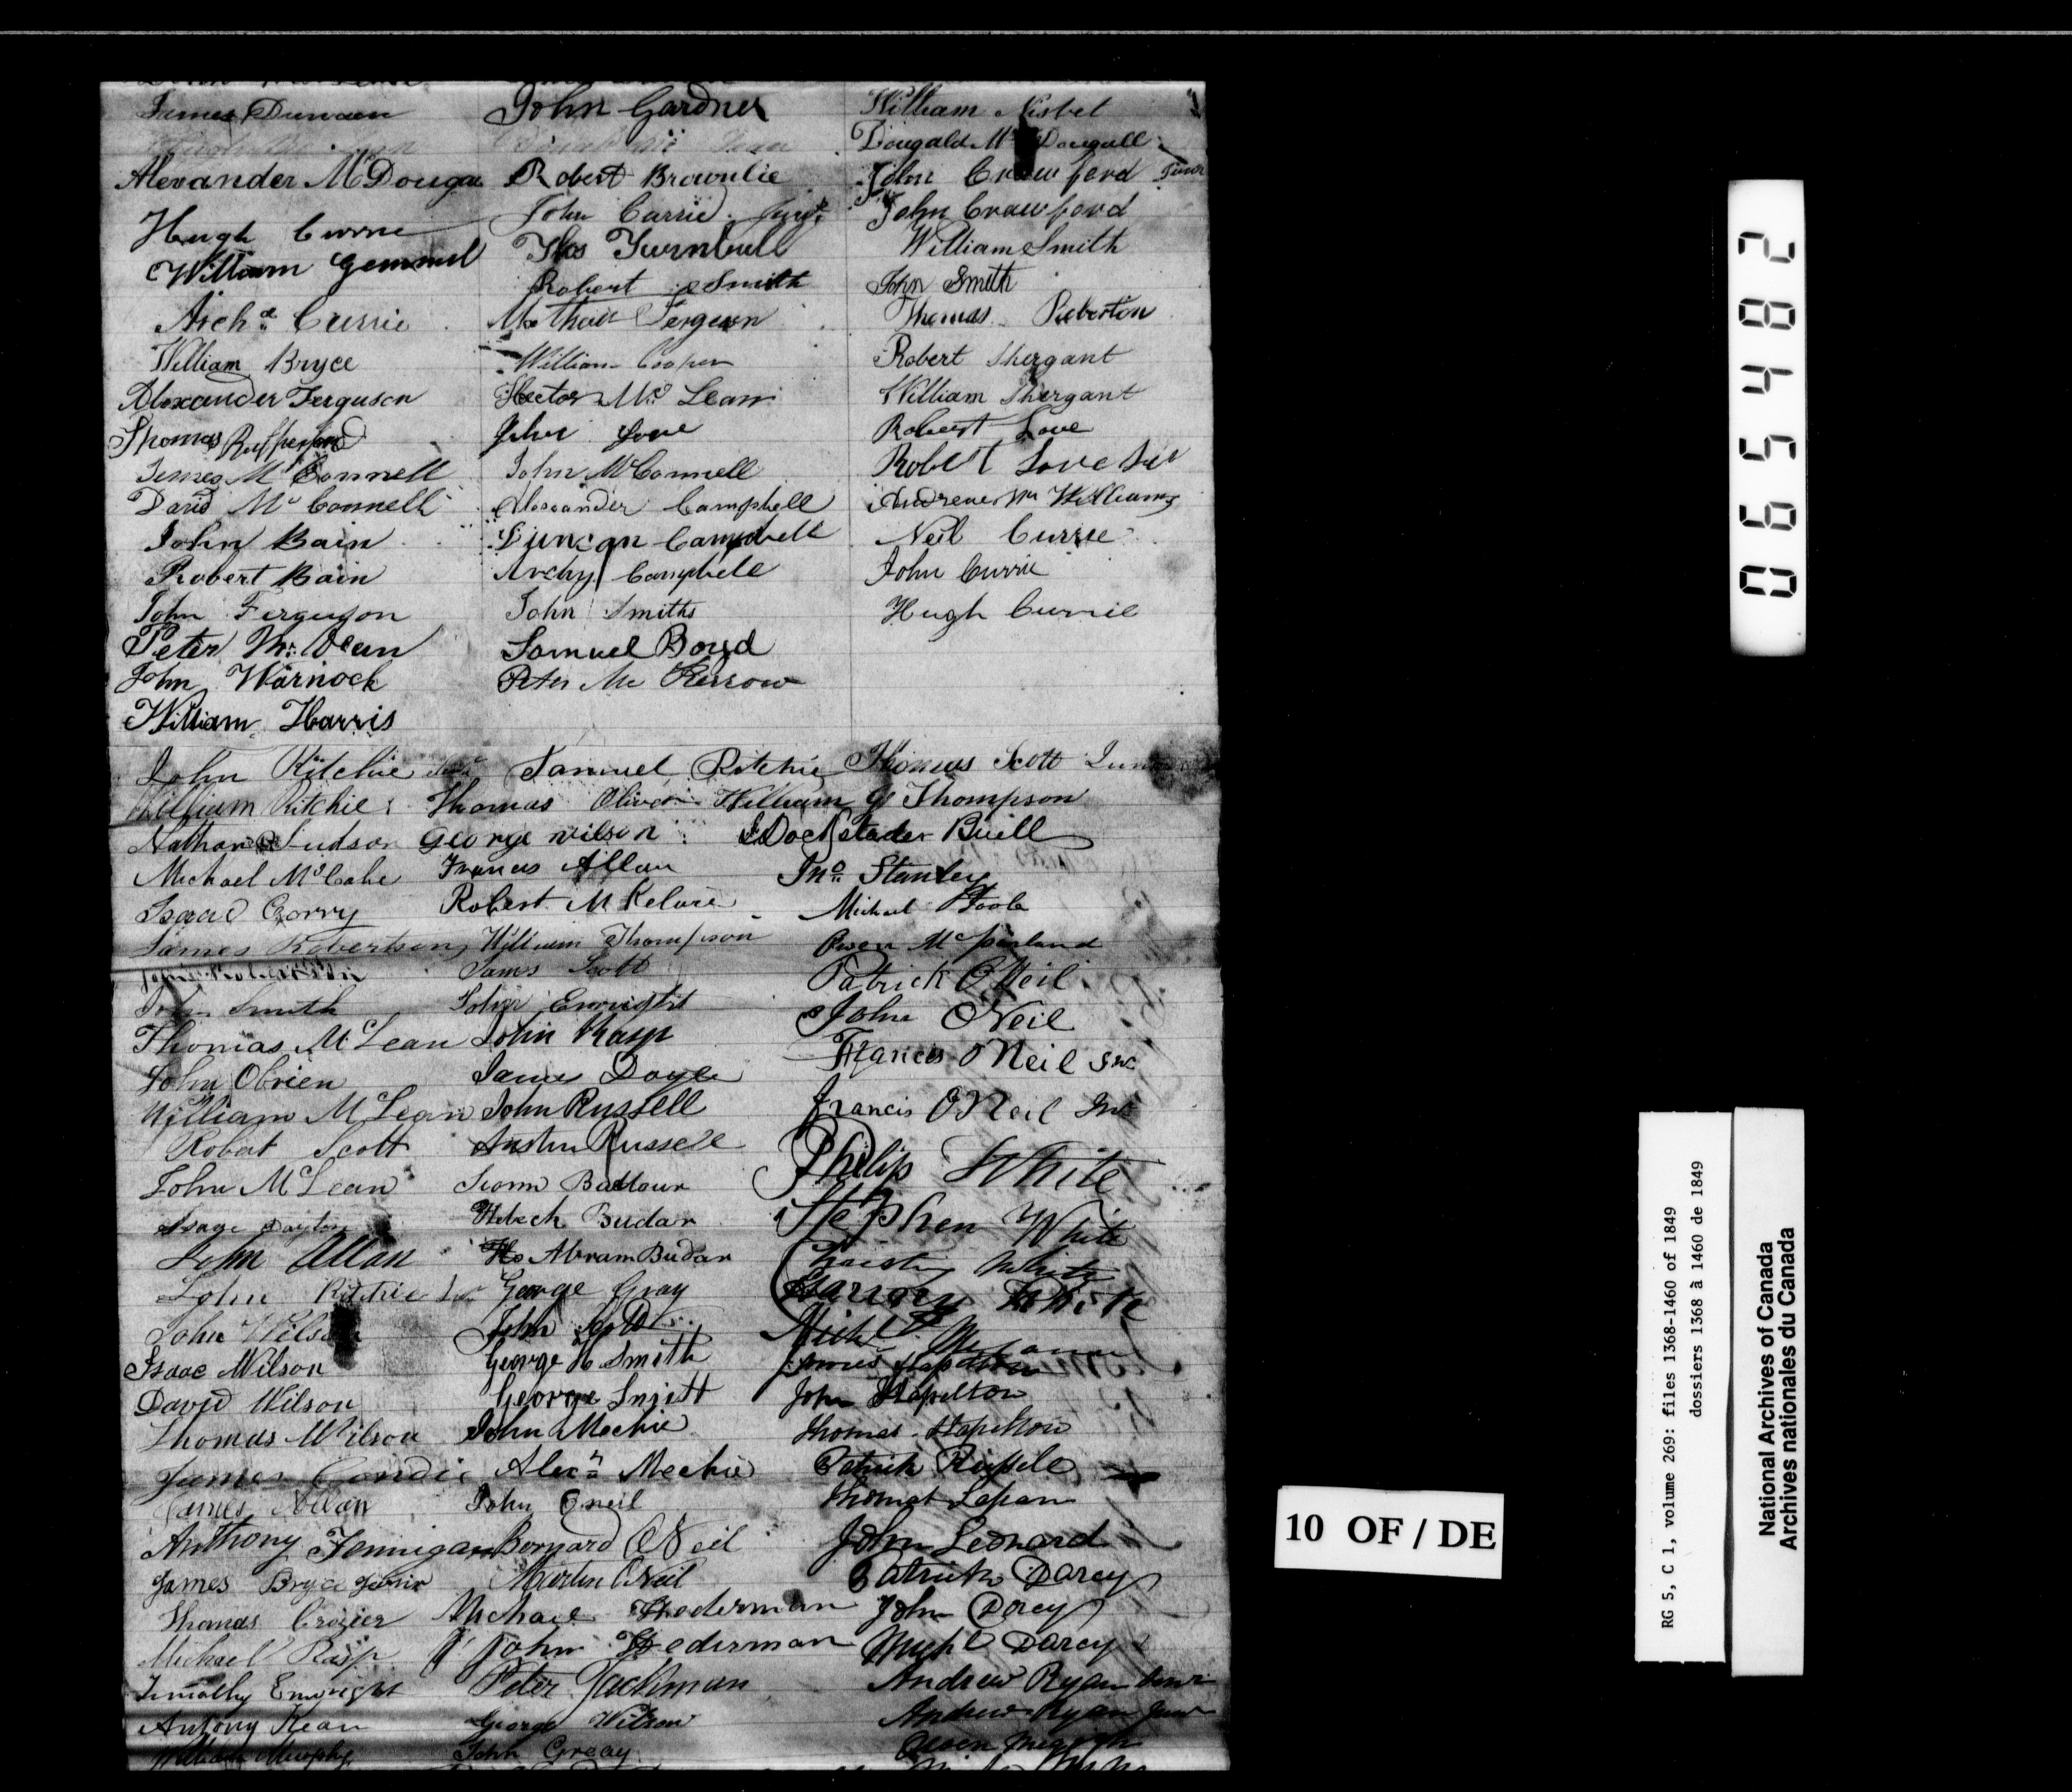 James Duncan
Alexander McDouga
Hugh Currie
William Gemmel
Archd. Currie
William Bryce
Alexander Ferguson
Thomas
James McConnell
David McConnell
John Bain
Robert Bain
John Ferguson
Peter
John Warnock
William Harris
John Gardner
Robert Brownlie
John Currie
Thos Turnbull
Robert Smith
William Cooper
Hector Mc Lean
John Love
John McConnell
Alexander Campbell
Duncan Campbell
Archy Campbell
John Smith
Samuel Boyd
Peter Mc Kerrow
William Nisbet
Dougald Mc Dougall
John Crawford Junr
John Crawford
William Smith
John Smith
Thomas Roberton
Robert Shergant
William Shergant
Robert Love
Robert Love
Andrew Mc Williams
Neil Currie
John Currie
Hugh Currie
John Ritchie
William Ritchie
Nathan Judson
Michael McCabe
Isaac Corry
James Robertson
John Smith
Thomas McLean
John Obrien
William McLean
Robert Scott
John McLean
John Allan
John Ritchie
John Wilson
Isaac Wilson
David Wilson
Thomas Wilson
James Condie
James Allan
Anthony Fennigan
James Bryce Junior
Thomas Crozier
Michael Rasp
Timothy Enwright
Antony Kean
William Murphy
Samuel Ritchie
Thomas Oliver
George Wilson
Francis Allan
Robert McKelvie
William Thompson
James Scott
John Enwright
John Rasp
James Doyle
John Russell
Austin Russell
Budar
Abram Budar
George Gray
John Scott
George H Smith
George
John Meckie
Alexr Meckie
John Oneil
Bernard ONeil
Martin ONeil
Michael Hederman
John Hederman
Peter Jackman
George Wilson
John Greay
Thomas Scott
William G Thompson
Dockstader Buell
Jno. Stanley
Michael Toole
Owen McParland
Patrick ONeil
John ONeil
Francis ONeil
Francis ONeil
Philip White
Stephen White
White
White
James Stapelton
John Stapelton
Thomas Stapelton
Patrick
Thomas
John Leonard
Patrick Darcy
John Darcy
Michl Darcy
Andrew Ryan
Andrew Ryan Junr
Owen
065482
10 OF / DE
RG 5, C 1, volume 269: files 1368-1460 of 1849
dossiers 1368 à 1460 de 1849
National Archives of Canada
Archives nationales du Canada